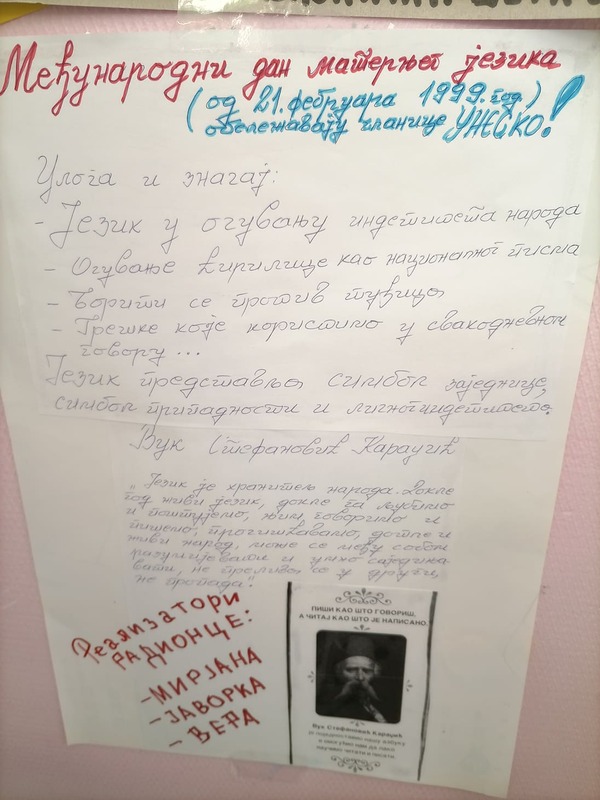 Међународни дан матерњег језика
(од 21. фебруара 1999. год.)
обележавају чланице УНЕСКО!
Улога и значај:
- Језик у очувању индетитета народа
- Очување ћирилице као националног писма
- Борити се против туђица
- Грешке које користимо у свакодневном
говору ...
Језик представља симбол заједнице,
симбол припадности и личног индетитета.
Вук Стефановић Караџић
„Језик је хранитељ народа. Докле
год живи језик, докле га љубимо
и поштујемо, њим говоримо и
пишемо, прочишћавамо, дотле и
живи народ, може се међу собом
разумијевати и умно сједиња-
вати, не прелива се у други,
не пропада".
Реализатори
РАДИОНЦЕ:
- МИРЈАНА
- ЈАВОРКА
- ВЕРА
ПИШИ КАО ШТО ГОВОРИШ,
А ЧИТАЈ КАО ШТО ЈЕ НАПИСАНО.
Вук Стефановић Караџић
је поједноставио нашу азбуку
и омогућио нам да лако
научимо читати и писати.